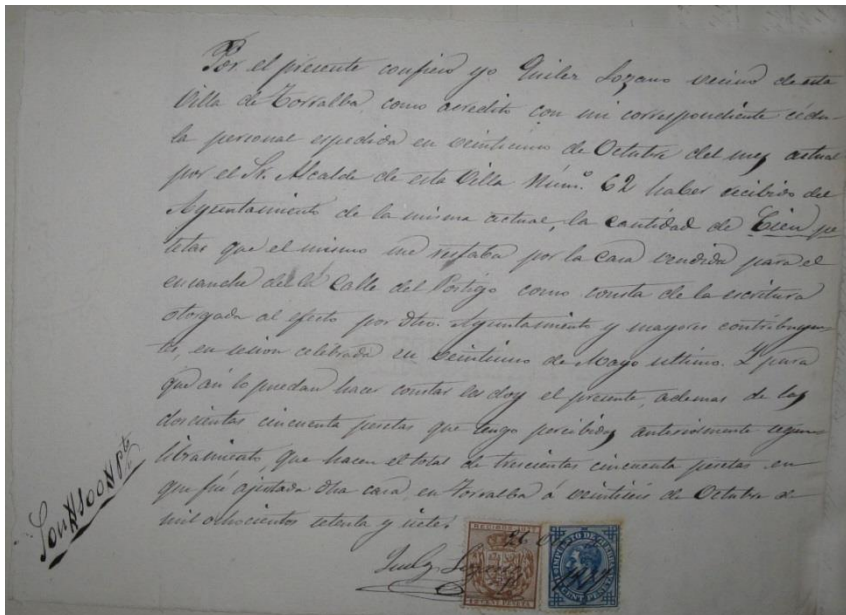 Por el presente confieso yo Quilez Lozano vecino de esta
Villa de Torralba como acredito con mi correspondiente cédu-
la personal espedida en veintiuno de Octubre del mes actual
por el Sr. Alcalde de esta Villa Núm.º 62 haber recibido del
Ayuntamiento de la misma actual, la cantidad de Cien pe
setas que el mismo me restaba por la casa vendida para el
ensanche de la Calle del Postigo como consta de la escritura
otorgada al efecto por dho. Ayuntamiento y mayores contribuyen-
tes, en sesion celebrada en veintiuno de Mayo ultimo. Y para
que asi lo puedan hacer constar les doy el presente, ademas de las
doscientas cincuenta pesetas que tengo percibidas anteriormente segun
libramiento, que hacen el total de trescientas cincuenta pesetas en
que fué ajustada dha casa, en Torralba á veintiseis de Octubre de
mil ochocientos setenta y siete.
Son #100# Pts
Lozano
26
RECIBOS
IMPUESTO DE GUERRA
1877